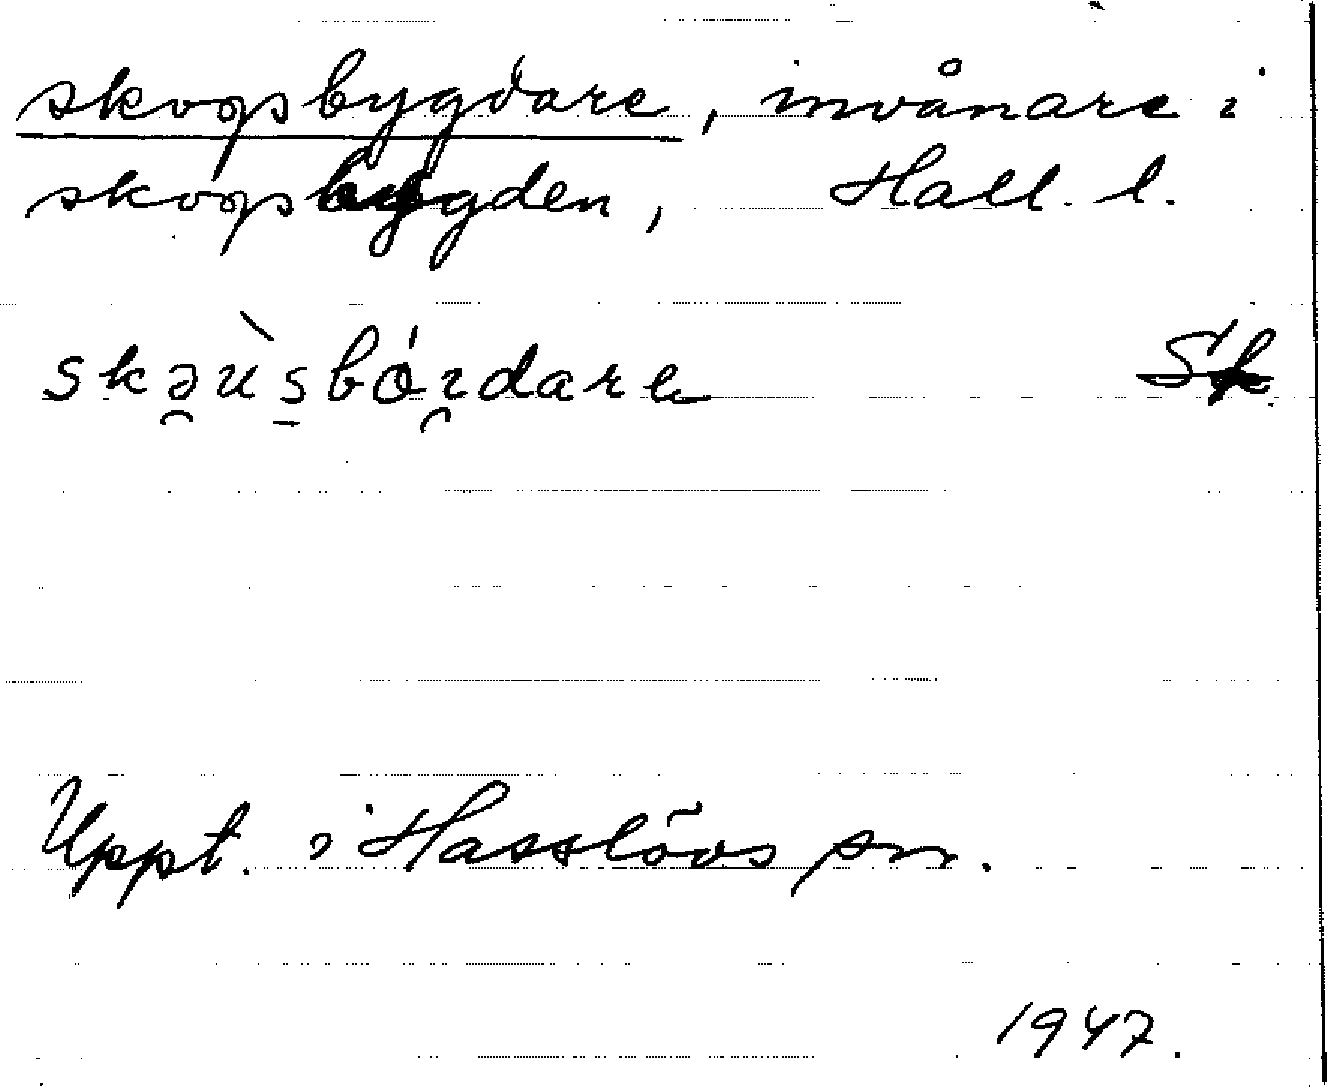 skogsbygdare, invånare i
skogsbygden, Hall. l.
skə̯ùs̠bór̯dare
Uppt. i Hasslövs sn.
1947.